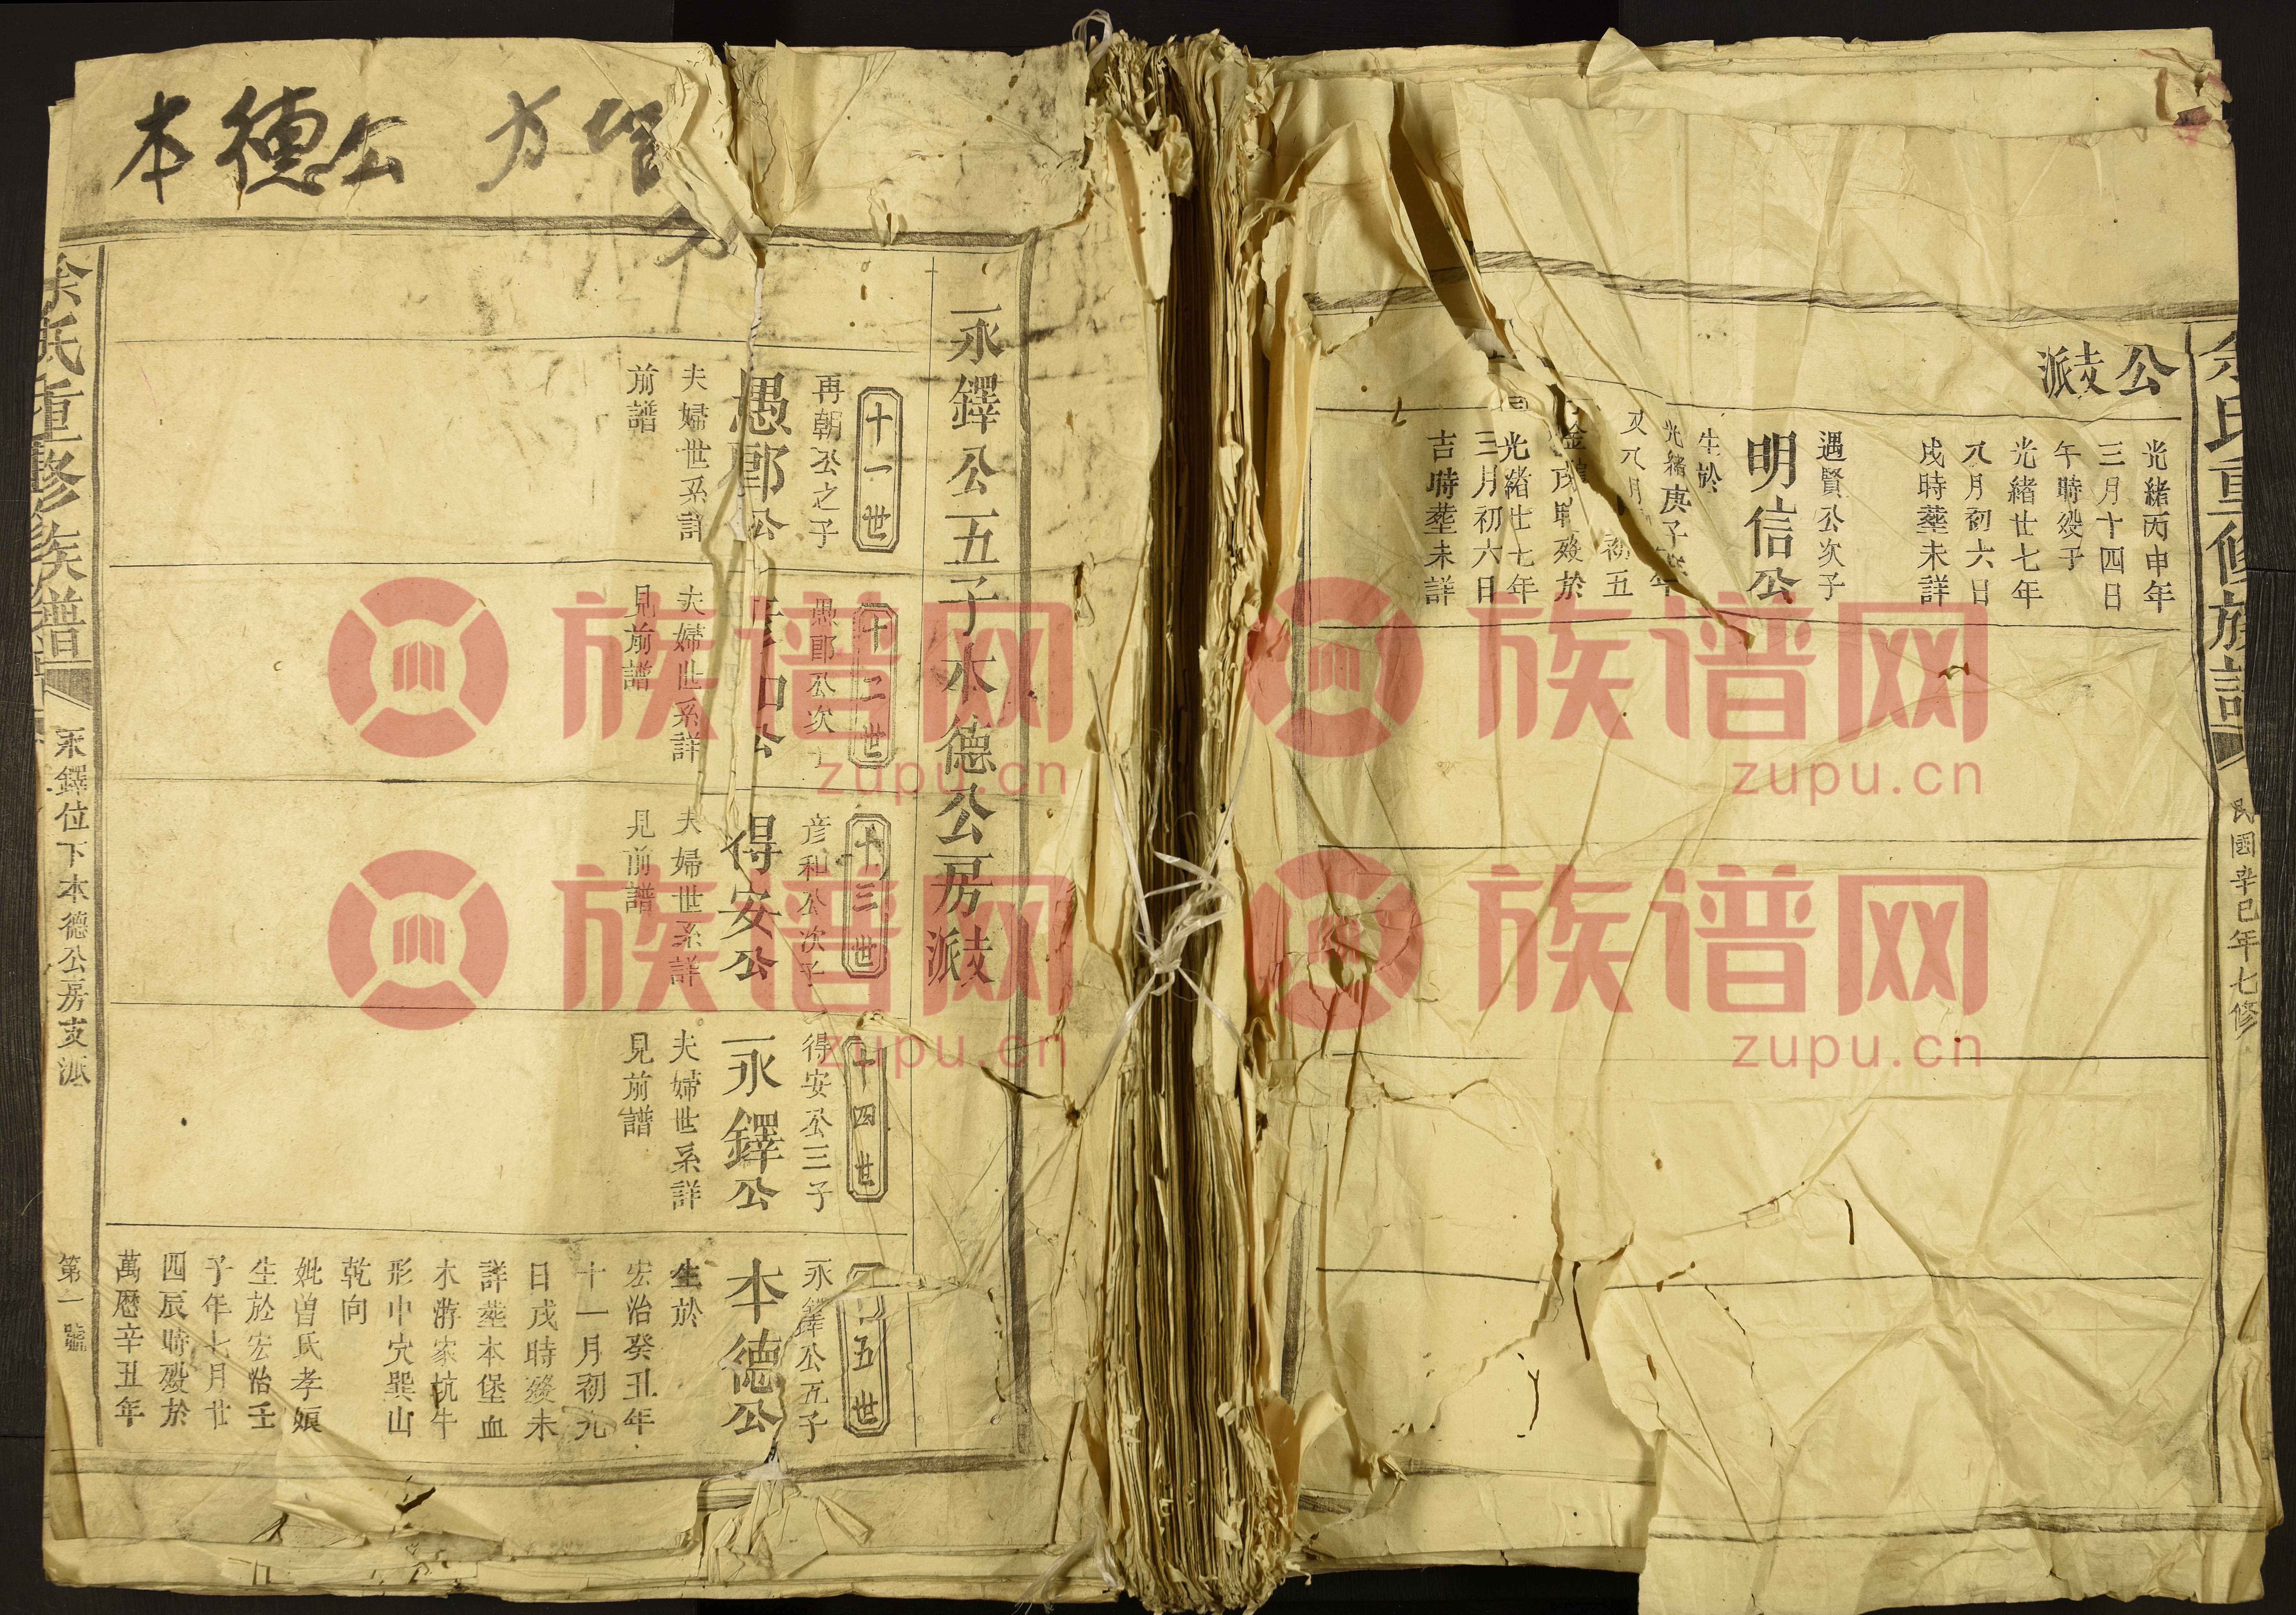 公支派
光緒丙申年
三月十四日
午時歿于
光緒廿七年
八月初六日
戌時塟未詳
遇賢公次子
明信公
生於
光緒庚子
初五
光緒廿七年
三月初六日
吉時塟未詳
民國辛巳年七修
本德公
永鐸公五子本德公房支派
十一世
再朝公之子
愚郎公
夫婦世系詳
前譜
十二世
愚郎公次
夫婦世系詳
見前譜
十三世
彦和公次子
得安公
夫婦世系詳
見前譜
十四世
得安公三子
永鐸公
夫婦世系詳
見前譜
五世
永鐸公五子
本德公
生於
宏治癸丑年
十一月初九
日戌時歿未
詳塟本堡血
木游家坑牛
形中穴巽山
乾向
妣曾氏孝娘
生於宏治壬
子年七月廿
四辰時歿於
萬曆辛丑年
余氏重修族譜
永鐸位下本德公房支派
第一號
族谱网
zupu.cn
族谱网
zupu.cn
族谱网
zupu.cn
族谱网
zupu.cn